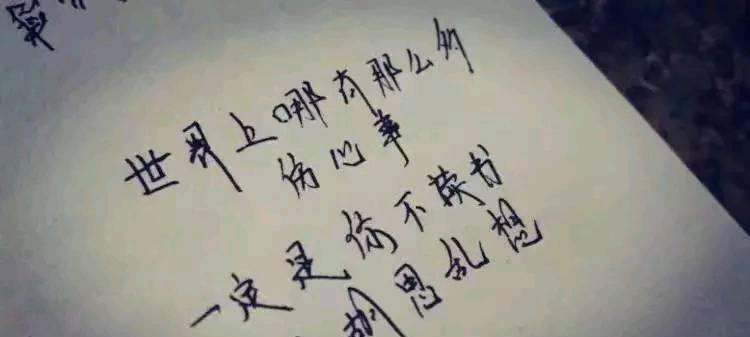 世界上哪有那么多
伤心事
一定是你不读书
胡思乱想